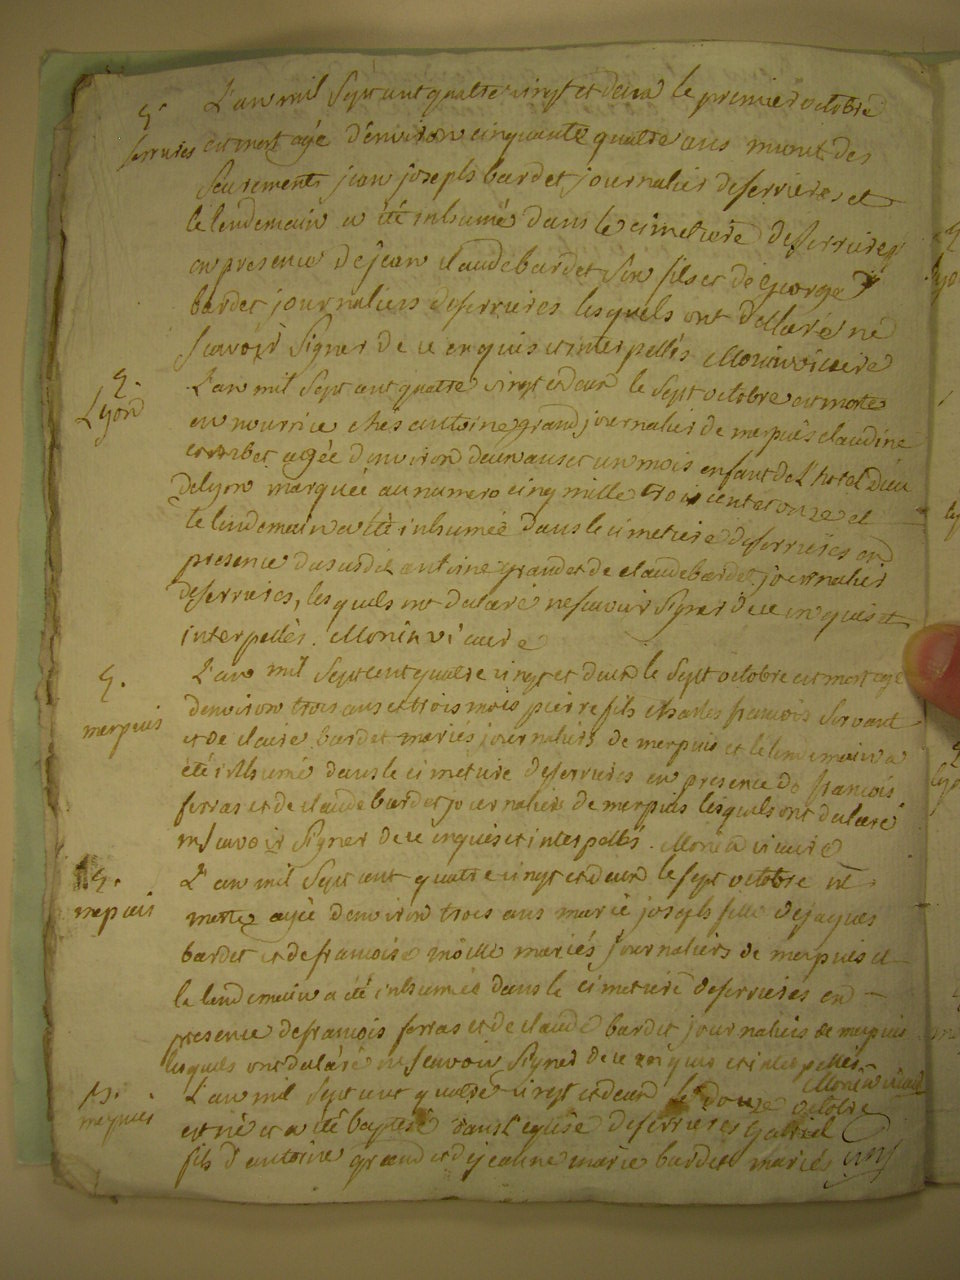 S.
L'an mil sept cent quatre vingt et deux le premier octobre
ferrieres est mort agé d'environ cinquante quatre ans munit des
Sacrements jean joseph bardet journalier de ferrieres et
le lendemain a été inhumé dans le cimetiere de ferrieres
en presence de jean claude bardet son fils et de george
bardet journaliers de ferrieres lesquels ont declaré ne
scavoir signer de ce enquis et interpellés Monin vicaire
S.
Lyon
L'an mil sept cent quatre vingt et deux le sept octobre est morte
en nourrice chés antoine grand journalier de merpuis claudine
agée d'environ deux ans et un mois enfant de L'hotel Dieu
de lyon marquée au numero cinq mille trois cent et onze et
le lendemain a été inhumée dans le cimetiere de ferrieres en
presence du susdit antoine grand et de claude bardet journalier
de ferrieres, lesquels ont declaré ne scavoir signer de ce enquis et
interpellés. Monin vicaire
S.
merpuis
L'an mil sept cent quatre vingt et deux le sept octobre est mort agé
d'environ trois ans et trois mois pierre fils françois Servant
et de claire bardet mariés journaliers de merpuis et le lendemain a
été inhumé dans le cimetiere de ferrieres en presence de françois
ferras et de claude bardet journaliers de merpuis lesquels ont declaré
ne scavoir signer de ce enquis et interpellés. Monin vicaire
S.
mepuis
L'an mil sept cent quatre vingt et deux le sept octobre est
morte agée d'environ trois ans marie joseph fille de jaques
bardet et de francoise moille mariés journaliers de merpuis et
le lendemain a été inhumée dans le cimetiere de ferrieres en
presence de francois ferras et de claude bardet journaliers de merpuis
lesquels ont declaré ne scavoir signer de ce enquis et interpelles.
Monin vicaire
B.
mepuis
L'an mil sept cent quatre vingt et deux le douze octobre
est né et a été baptisé dans l'eglise de ferrieres Gabriel
fils d'antoine grand et de jeanne marie bardet mariés